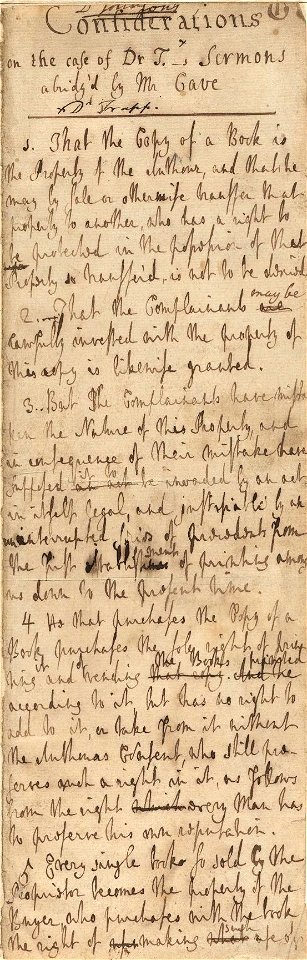 D Johnsons
Considerations
on the case of Dr T.—s Sermons
abridg'd by Mr Cave
x Dr Trapp.
1. That the Copy of a Book is
the Property of the Authour, and that he
may by sale or otherwise transfer that
property to another, who has a right to
be protected in the possession of that
Property so transferred, is not to be denied
2. That the Complainants may be
lawfully invested with the property of
this copy is likewise granted.
3. But The Complainants have mista
ken the Nature of this Property, and
in consequence of their mistake have
supposed it to be invaded by an act
in itself legal, and justifiable by an
uninterrupted series of precedents from
the first establishment of printing among
us down to the present time.
4 He that purchases the Copy of a
Book purchases the sole right of prin
ting it and vending the Books printed
according to it, but has no right to
add to it, or take from it without
the Authours Consent, who still pre
serves such a right in it, as follows
from the right every Man has
to preserve his own reputation.
5 Every single book so sold by the
Proprietor becomes the property of the
Buyer, who purchases with the book
the right of making such use of